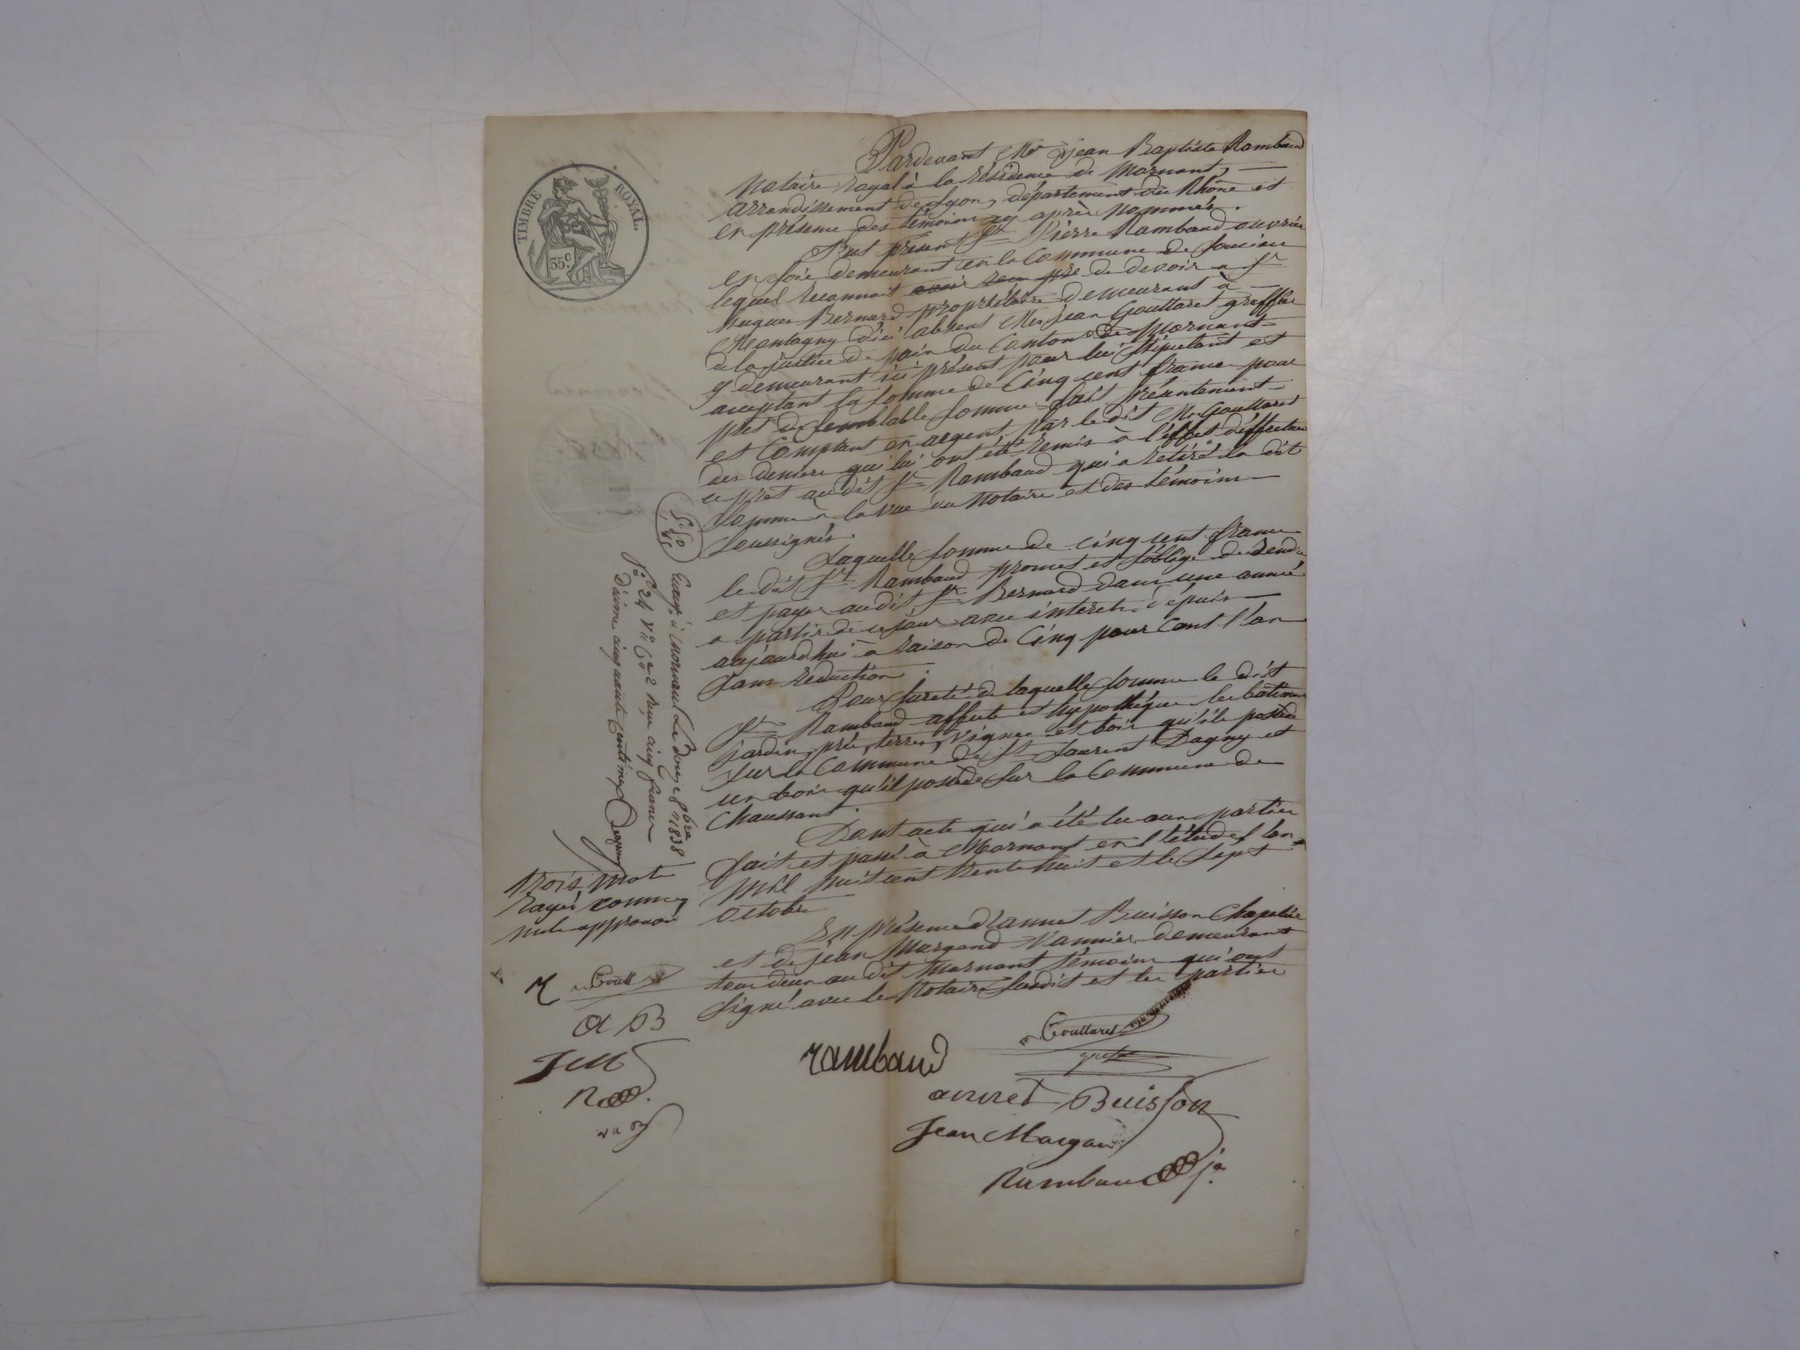 TIMBRE ROYAL
35 c
Pardevant Me Jean Baptiste Rambaud
Notaire royal à la résidence de Mornant,
arrondissement de Lyon, département du Rhône et
en présence des témoins cy après nommés.
Fut présent Sr Pierre Rambaud ouvrier
en soie demeurant en la commune de Soucieu
lequel reconnait avoir devoir a Sr
hugues Bernard propriétaire demeurant à
Montagny d'ici absent Me Jean Gouttaret greffier
de la justice de paix du Canton de Mornant
y demeurant ici présent pour lui stipulant et
acceptant la somme de Cinq cent francs pour
prêt de semblable somme fait présentement
et comptant en argent par le dit Me Gouttaret
des deniers qui lui ont été remis à l'effet d'effectuer
ce prêt au dit Sr Rambaud qui a retiré la dite
somme à la vue du Notaire et des témoins
soussignés.
Laquelle somme de cinq cent francs
le dit Sr Rambaud promet et s'oblige de rendre
et payer au dit Sr Bernard dans une année
a partir de ce jour avec intérêts depuis
aujourd'hui à raison de Cinq pour Cent l'an
sans réduction.
Pour sureté de laquelle somme le dit
Sr Rambaud affecte et hypothèque les bâtiments
jardin, pré, terres, vignes et bois qu'il possède
sur la Commune de St Laurent Dagny et
un bois qu'il possède sur la Commune de
Chaussant.
Dont acte qui a été lu aux parties
fait et passé à Mornant en l'étude, l'an
Mil huit cent trente huit et le sept
octobre
En présence d'annet Buisson Chapelier
et de jean Margand Vannier demeurant
tous deux au dit Mornant témoins qui ont
signé avec le Notaire susdit et les parties
5. 50
Enreg. à Mornant Le Douze 8bre 1838
fo 24 Vo Cses 2 Reçu cinq francs
Décime cinquante centimes
Trois mots
rayés comme
nuls approuvé
R
Goutt
A B
J M
R
rambaud
Gouttaret
greff
annet Buisson
Jean Margan
Rambaud